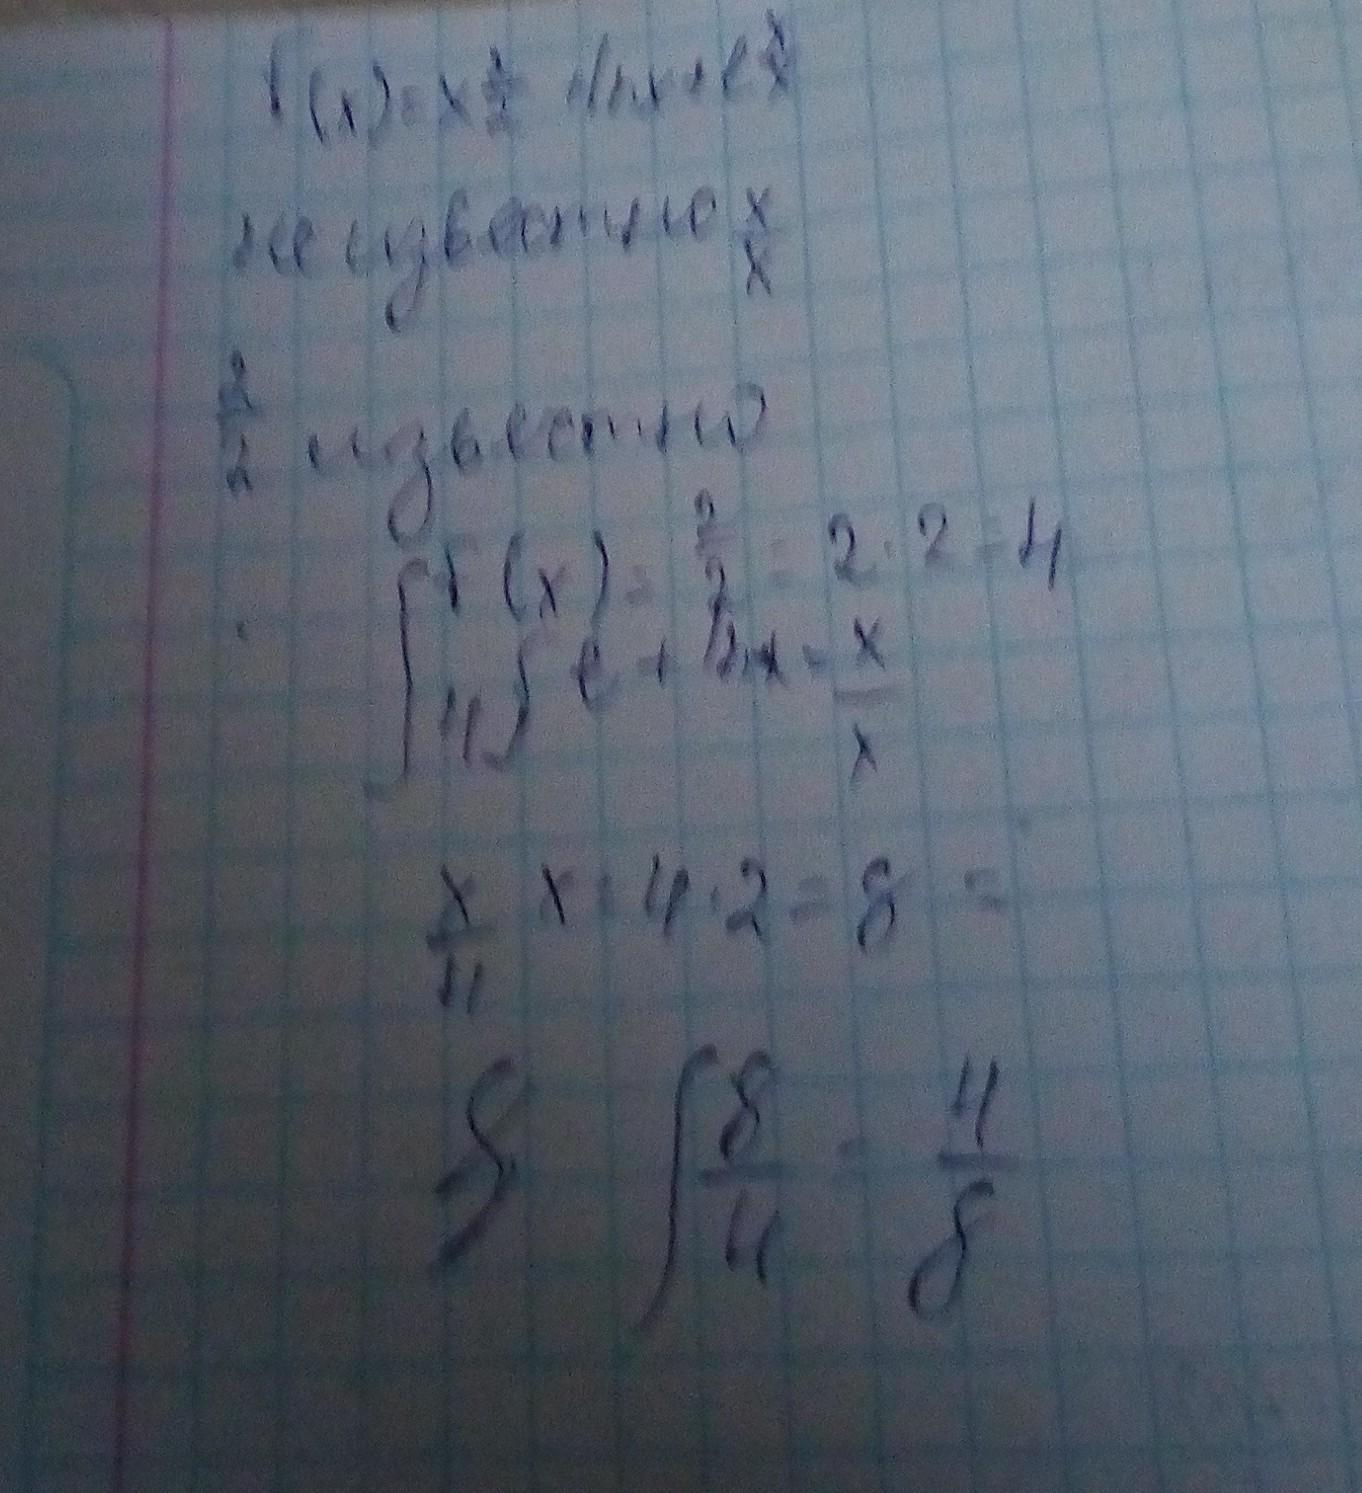 f(x)=x 2/2 + ln x + e x/x
неизвестно x/x
2/2 известно
∫ f(x) = 2/2 = 2·2=4
4 ∫ e + ln x = x/x
x/4 x · 4·2=8 =
∫ ∫ 8/4 = 4/8